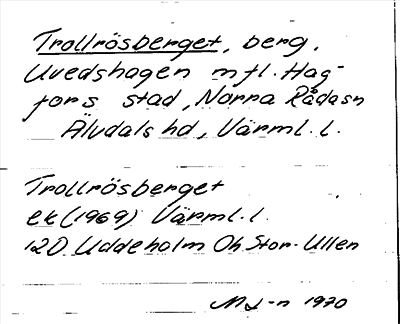 Trollrösberget, berg,
Uvedshagen mfl. Hag-
fors stad, Norra Rådasn
Älvdals hd, Värml. l.
Trollrösberget
ek (1969) Värml. l.
12D Uddeholm Oh Stor-Ullen
1970